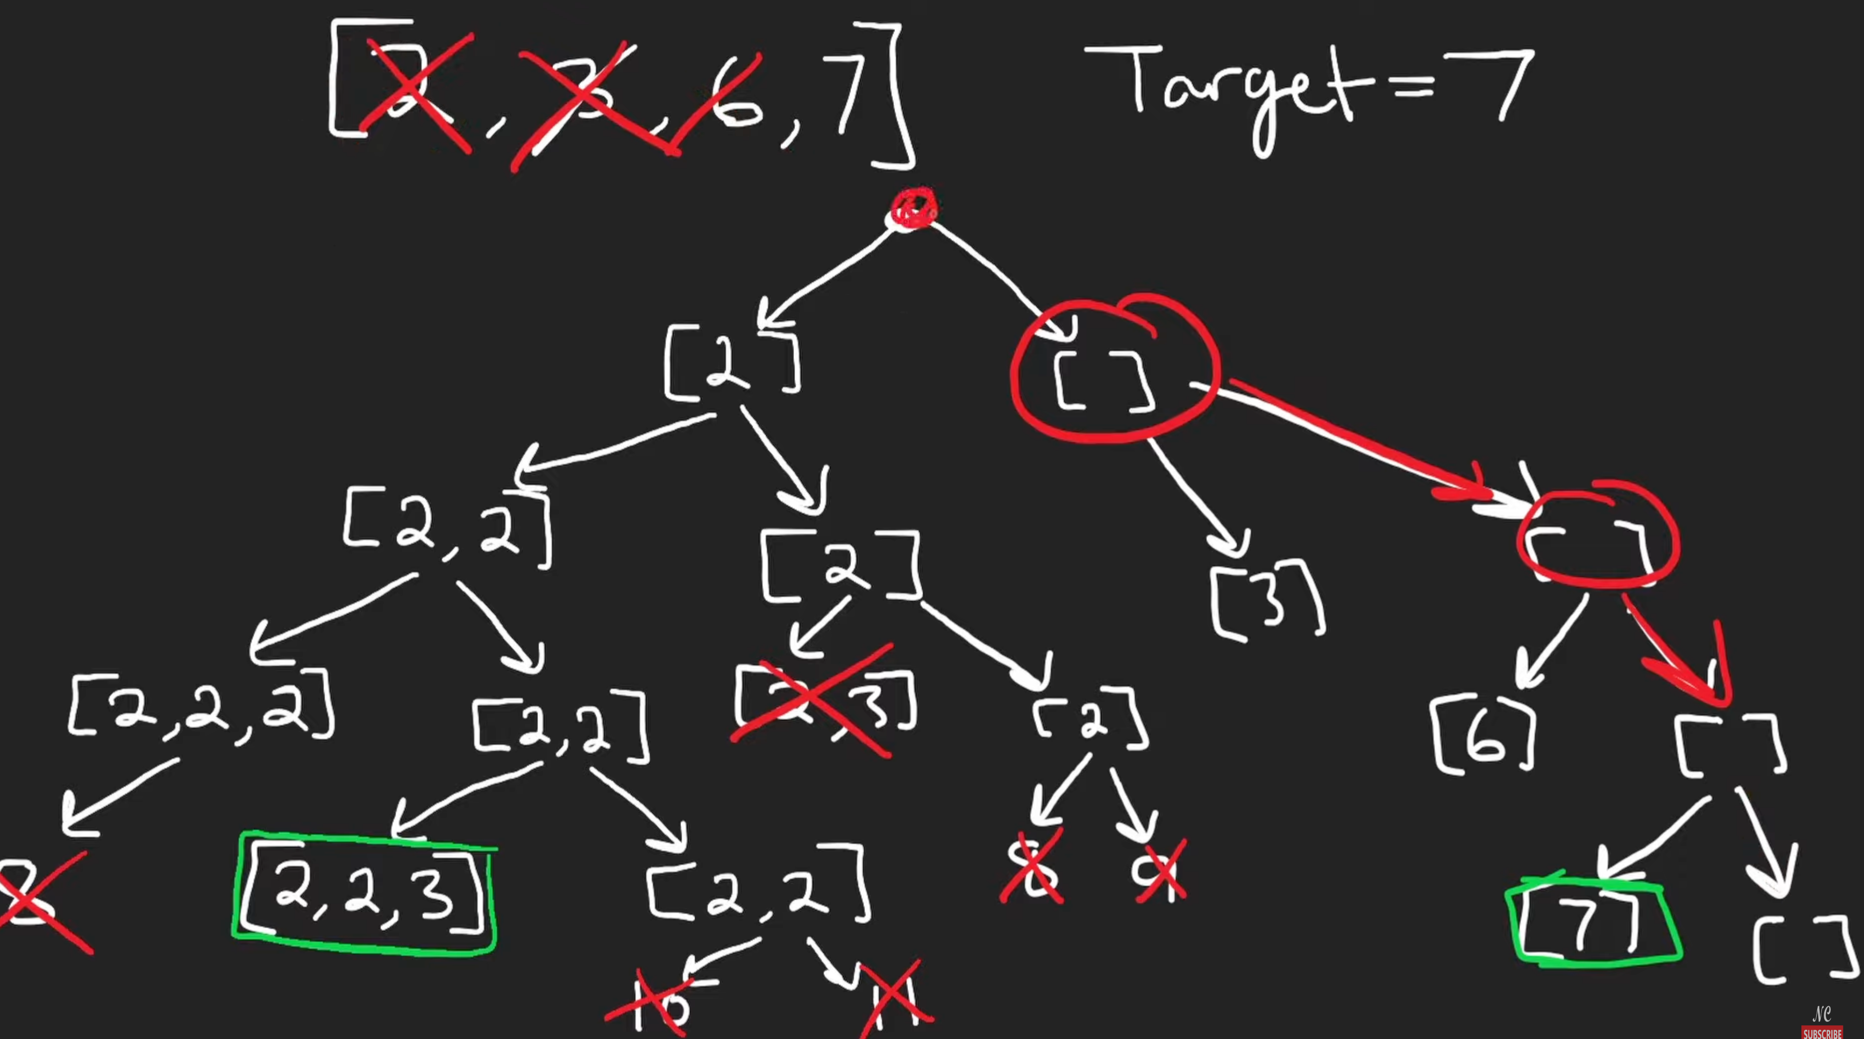 [2, 3, 6, 7] Target = 7
[2] [ ]
[2, 2] [2] [3] [ ]
[2, 2, 2] [2, 2] [2, 3] [2] [6] [ ]
8 [2, 2, 3] [2, 2] 8 9 [7] [ ]
10 11
NC
SUBSCRIBE